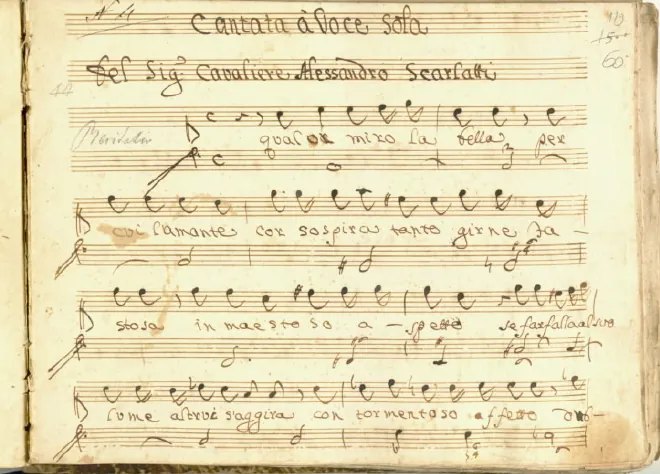 N. 4
Cantata à Voce Sola
19
15
60
Del Sig.r Cavaliere Alessandro Scarlatti
44
Recitativo
qualor miro la bella per
cui l'amante cor sospira tanto girne fa-
stosa in maestoso a-spetto se farfalla al suo
lume altrui s'aggira con tormentoso affetto